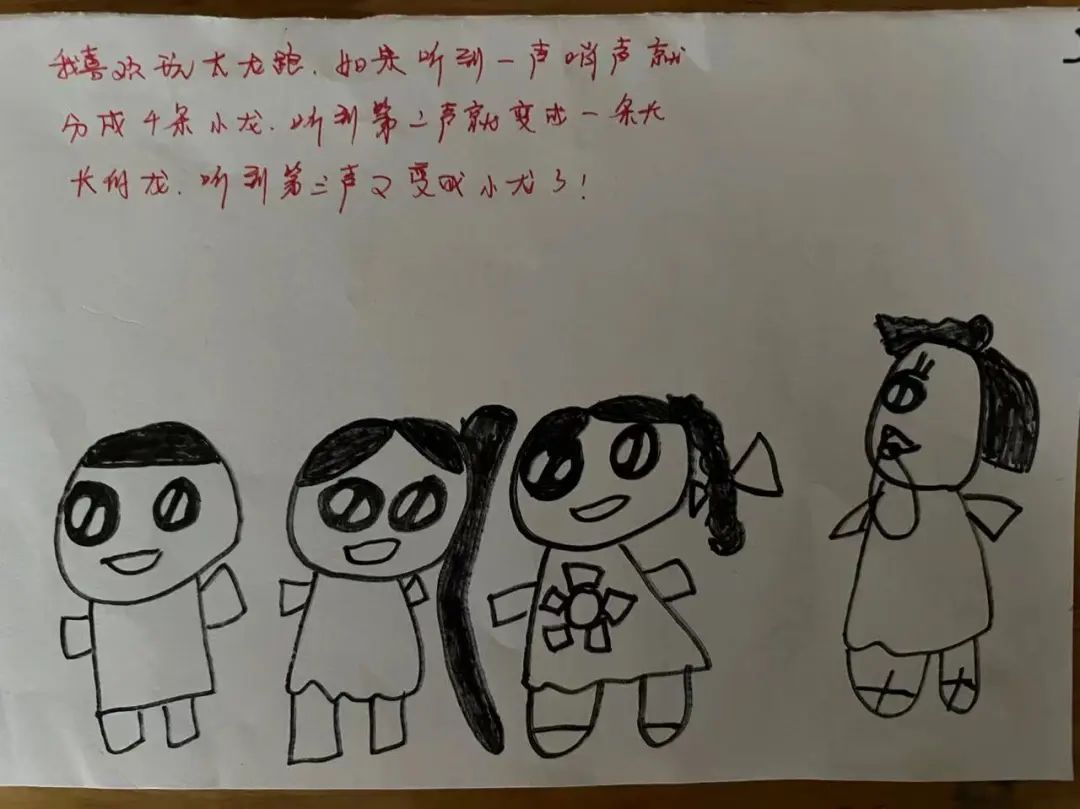 我喜欢玩大龙跑.如果听到一声哨声就
分成4条小龙.听到第二声就变成一条长
长的龙.听到第三声又变成小龙了!